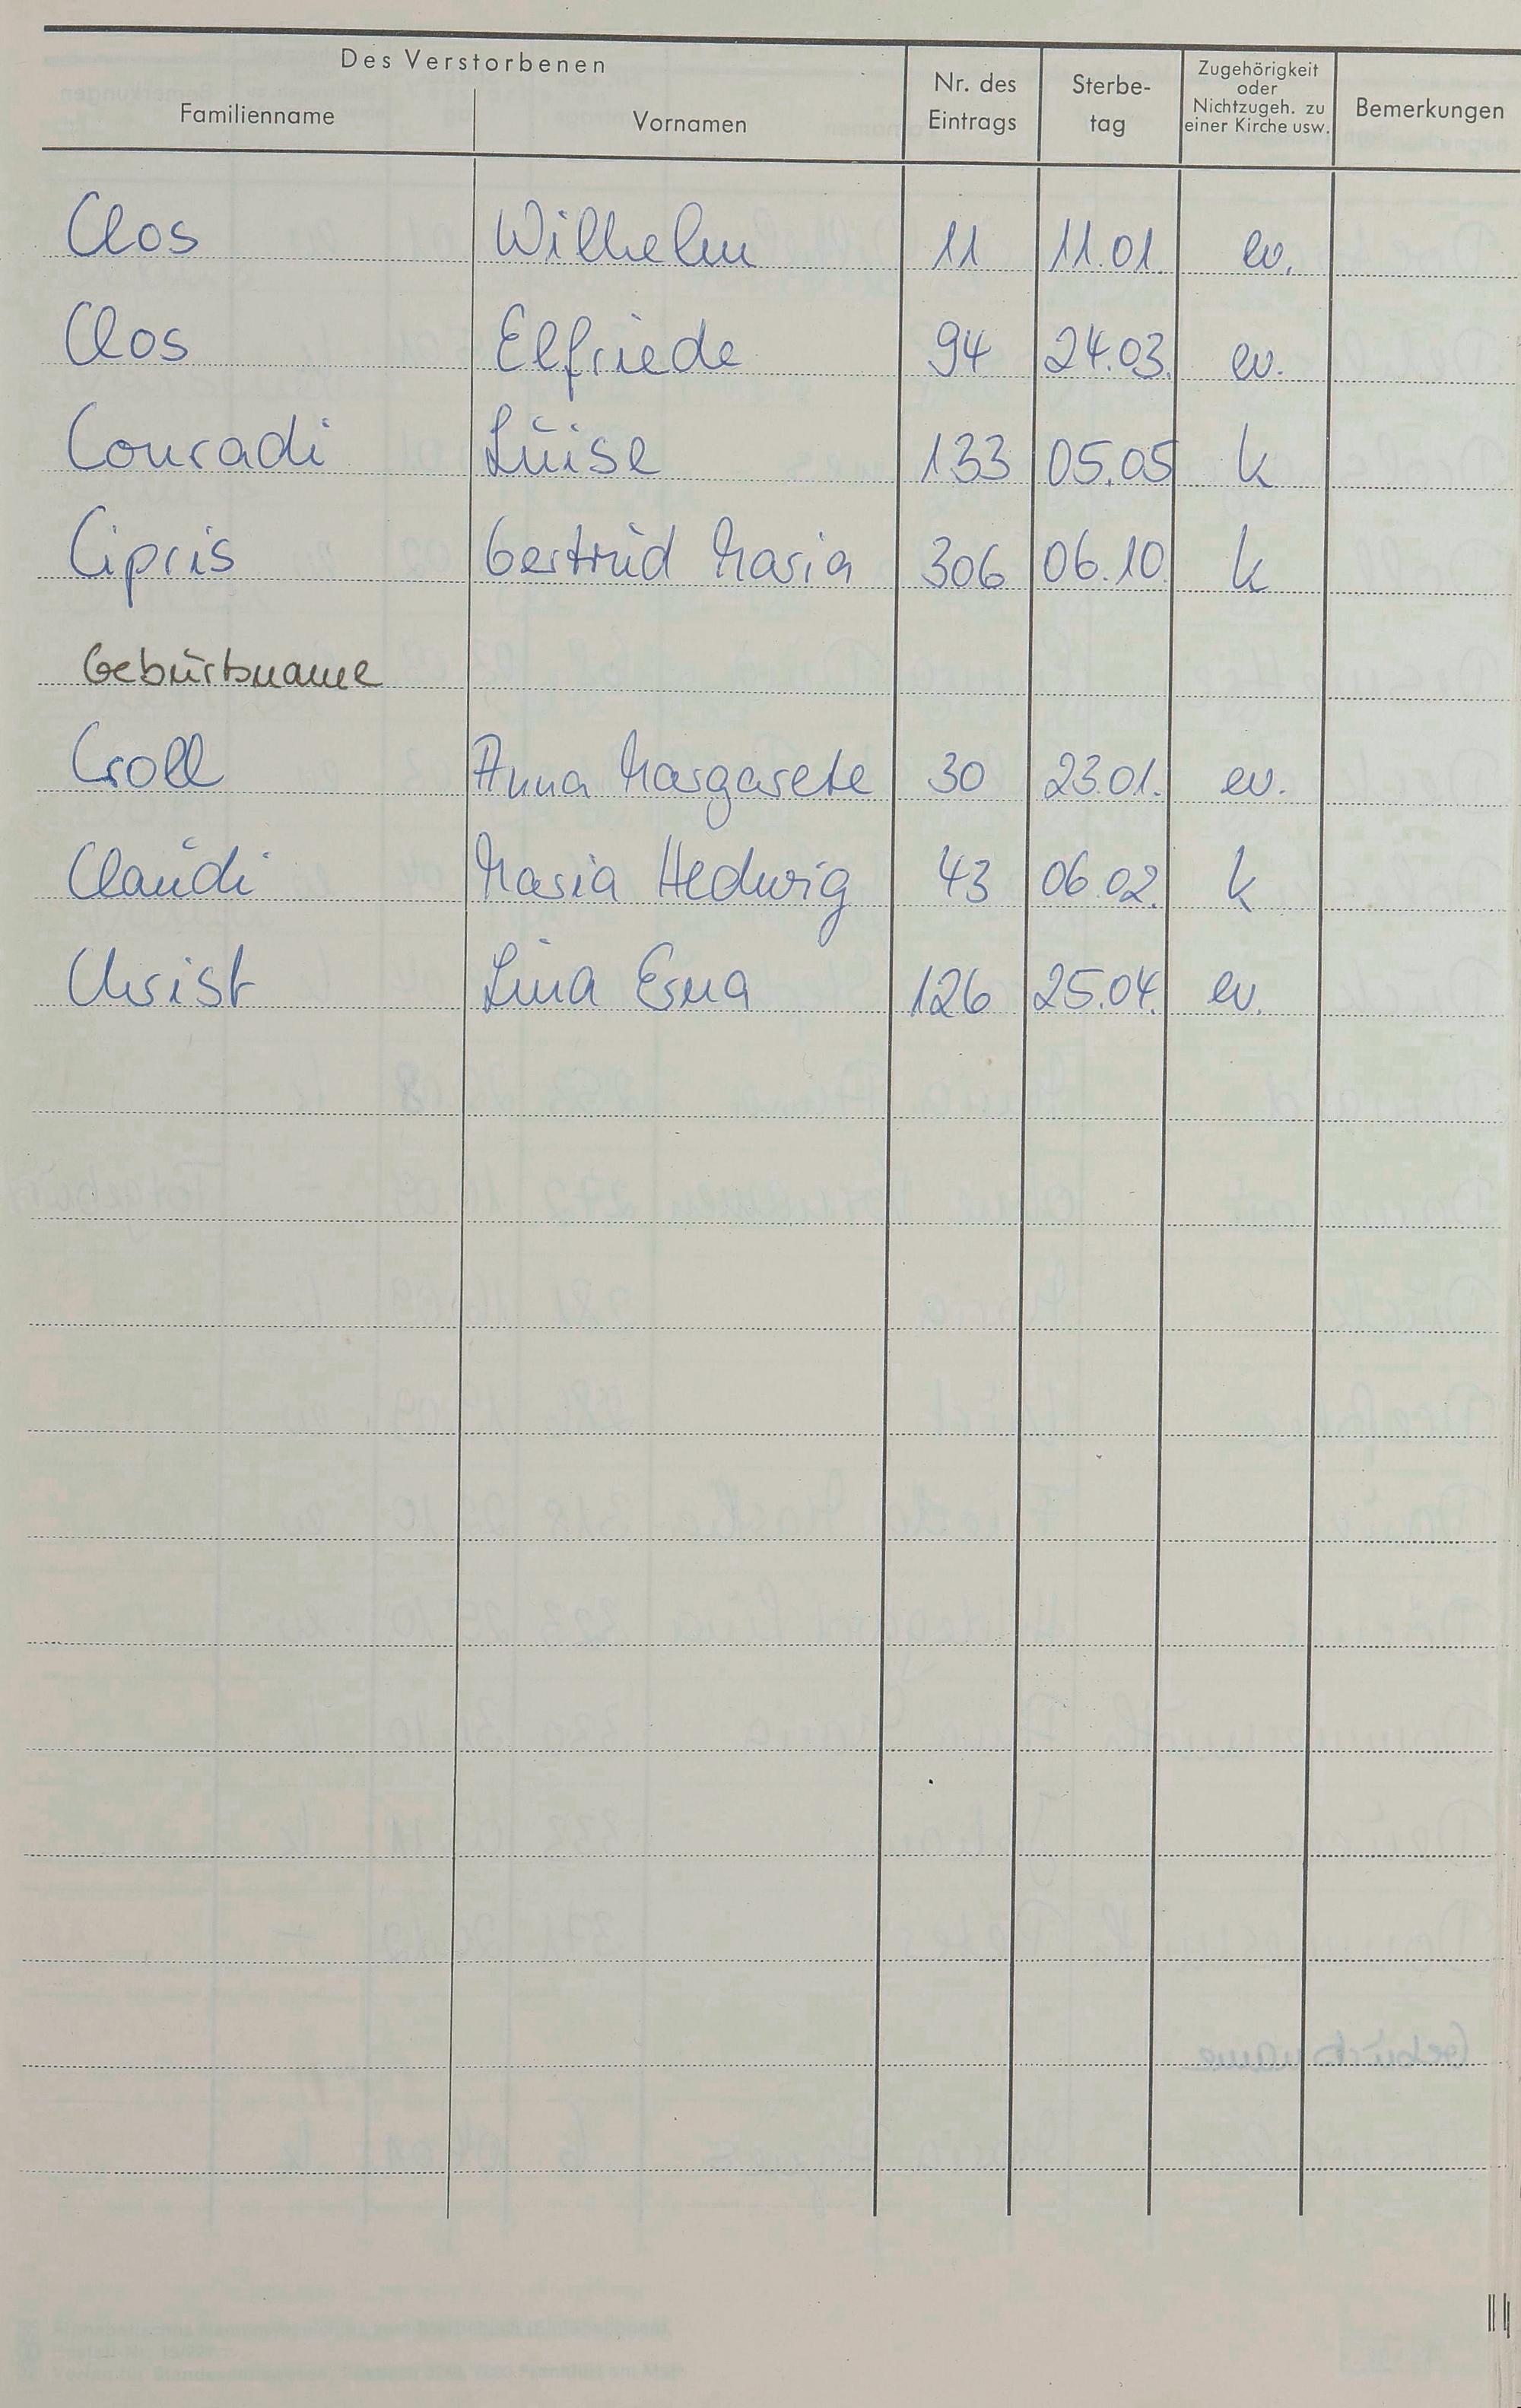 Des Verstorbenen
Familienname Vornamen Nr. des Eintrags Sterbe-tag Zugehörigkeit oder Nichtzugeh. zu einer Kirche usw. Bemerkungen
Clos Wilhelm 11 11.01. ev.
Clos Elfriede 94 24.03. ev.
Conradi Luise 133 05.05 k
Cipris Gertrud Maria 306 06.10. k
Geburtsname
Croll Anna Margarete 30 23.01. ev.
Claudi Maria Hedwig 43 06.02. k
Christ Lina Erna 126 25.04. ev.